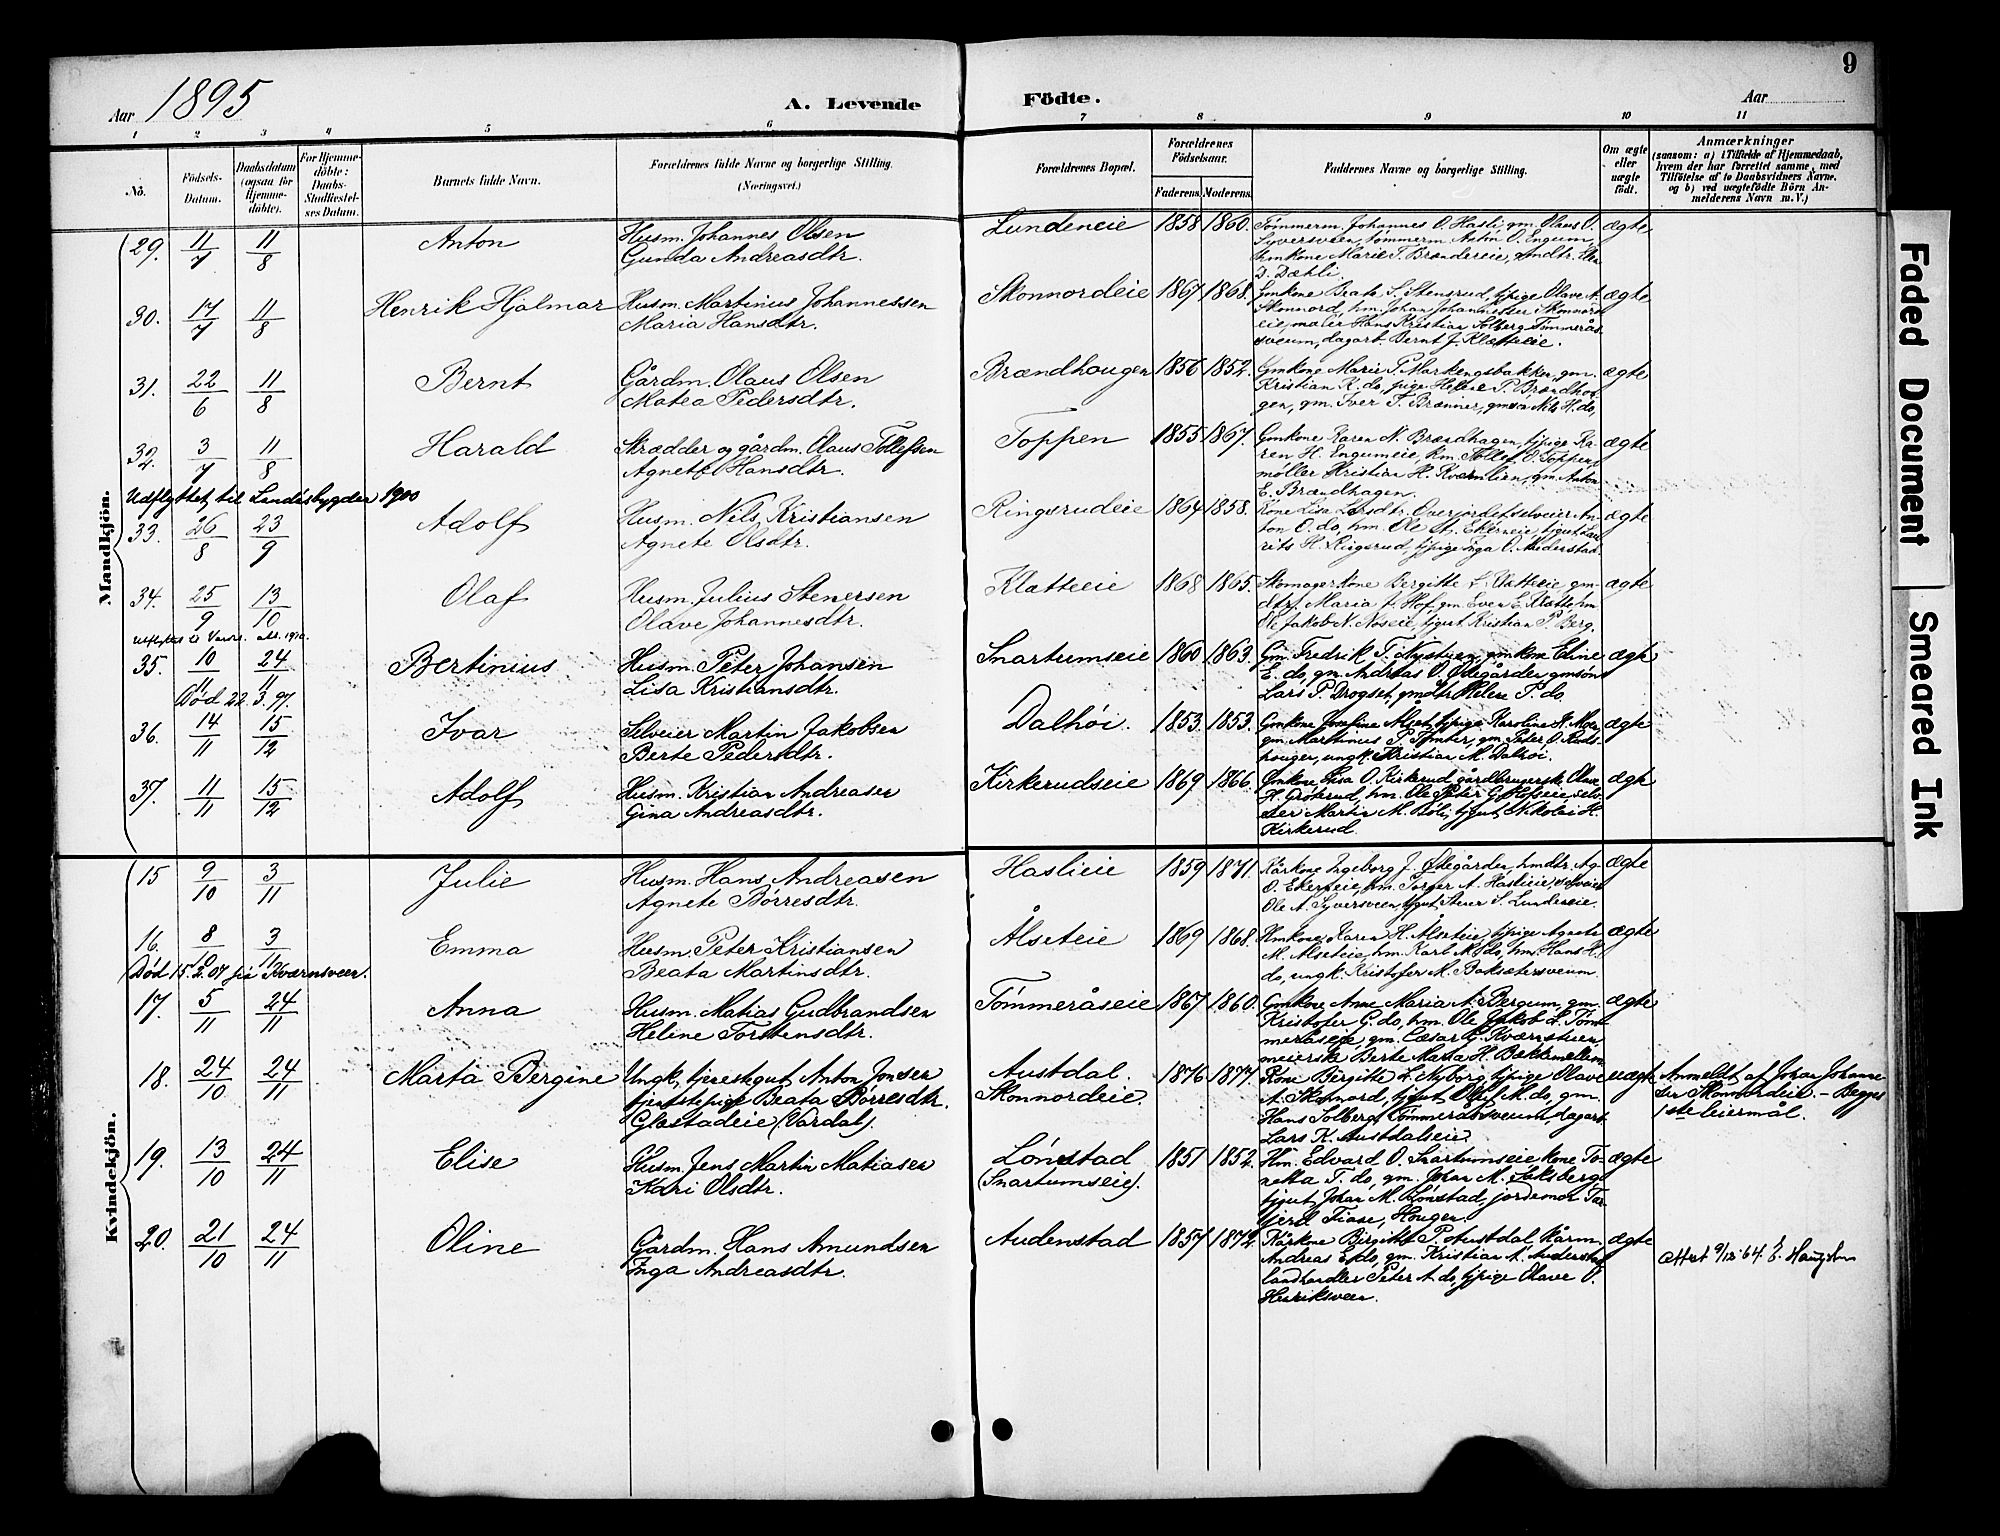 9
Aar 1895
A. Levende
Födte.
Aar
1 2 3 4 5 6 7 8 9 10 11
No.
Födsels-Datum.
Daabsdatum (ogsaa for Hjemmedöbte).
For Hjemmedöbte: Daabs-Stadfæstelses Datum.
Barnets fulde Navn.
Forældrenes fulde Navne og borgerlige Stilling. (Næringsvei.)
Forældrenes Bopæl.
Forældrenes Födselsaar.
Faderens. Moderens.
Faddernes Navne og borgerlige Stilling.
Om ægte eller uægte födt.
Anmærkninger
(saasom: a) i Tilfælde af Hjemmedaab,
hvem der har forrettet samme, med
Tilföielse af to Daabsvidners Navne,
og b) ved uægtefödte Börn Anmelderens Navn m.V.)
Mandkjön.
29. 11/7 11/8 Anton
Husm. Johannes Olsen
Gunda Andreasdtr.
Lundeneie 1858 1860.
Tømmerm. Johannes O. Hasli, gm. Olaus O.
Syversveen, tømmerm. Anton O. Engum,
D. Dæhli.
ægte
30. 17/7 11/8 Henrik Hjalmar
Husm. Martinus Johannessen
Maria Hansdtr.
Skonnordeie 1867 1868.
Gmkone Beate S. Stensrud, tjpige Olave A.
Skonnord, hm. Johan Johannessen Skonnord-
eie, maler Hans Kristian Solberg Tømmerås-
sveum, dagarb. Bernt J. Klætteeie.
ægte
31. 22/6 11/8 Bernt
Gårdm. Olaus Olsen
Matea Pedersdtr.
Brændhougen 1856 1852.
Gmkone Marie P. Markengsbakken, gm.
Kristian K. do, pige Helene P. Brændhou-
gen, gm. Iver T. Brænner, gmsøn Nils H. do,
ægte
32. 3/7 11/8 Harald
Skrædder og gårdm. Olaus Tollefsen
Agnete Hansdtr.
Toppen 1855 1867.
Gmkone Karen N. Brændhagen, tjpige Ka-
ren H. Engumeie, hm. Tollef O. Toppen,
møller Kristian H. Kværnlien, gm. Anton
E. Brændhagen.
ægte
Udflyttet til Landisbygden 1900
33. 26/8 23/9 Adolf
Husm. Nils Kristiansen
Agnete Olsdtr.
Ringsrudeie 1864 1858.
Kone Lisa Larsdtr. Overjordet selveier An-
ton O. do, hm. Ole St. Ekerneie, tjgut Lau-
rits H. Ringsrud, tjpige Inga O. Auderstad.
ægte
34. 25/9 13/10 Olaf
Husm. Julius Stenersen
Olave Johannesdtr.
Klætteeie 1868 1865.
Skomagerkone Bergitte L. Klætteeie gm-
dtr. Maria J. Hof, gm. Even E. Klætte hm.
Ole Jakob N. Noseie, tjgut Kristian P. Berg.
ægte
35. 10/11 24/11 Bertinius
Husm. Peter Johansen
Lisa Kristiansdtr.
Snartumseie 1860 1863.
Gm. Fredrik T. Nystuen, gmkone Eline
E. do, gm. Andreas O. Ødegården gmsøn
Lars P. Drogset, gmdtr. Helene P. do
ægte
Død 22.3.97.
36. 14/11 15/12 Ivar
Selveier Martin Jakobsen
Berte Pedersdtr.
Dalhøi. 1853 1853.
Gmkone Josefine Alset, tjpige Karoline H. Moen,
gm. Martinus P. Tomter, gm. Peter O. Ruds-
hougen, ungk. Kristian M. Dalhøi.
ægte
37. 11/11 15/12 Adolf
Husm. Kristian Andreasen
Gina Andreasdtr.
Kirkerudseie 1869 1866.
Gmkone Lisa O. Kirkerud, gårdbrugerske Olave
H. Grøterud, hm. Ole Peter G. Hofseie, selv-
eier Martin M. Bøli, tjgut Nikolai H.
Kirkerud.
ægte
Kvindekjön.
15 9/10 3/11 Julie
Husm. Hans Andreasen
Agnete Børresdtr.
Haslieie 1859 1871.
Kårkone Ingeborg J. Ødegården, hmdtr. Ag-
O. Ekerneie, hm. Torger A. Haslieie, selveier
Ole A. Syversveen, tjgut Stener S. Lundeneie.
ægte
16. 8/10 3/11 Emma
Husm. Peter Kristiansen
Beata Martinsdtr.
Ålseteie 1869 1868.
Hmkone Karen H. Ålseteie, tjpige Agnete
M. Alseteie, hm. Karl N. do, hm. Hans H.
do, ungk. Kristofer M. Baksætersveum.
ægte
Død 15.2.07 på Kværnsveen.
17. 5/11 24/11 Anna
Husm. Matias Gudbrandsen
Heline Torstensdtr.
Tømmeråseie 1867 1860.
Gmkone Anne Maria A. Bergum, gm.
Kristofer G. do, hm. Ole Jakob L. Tøm-
meråseie, gm. Cæsar G. Kværnstuen,
meierske Berte Marta H. Bakkemellem
ægte
18. 24/10 24/11 Marta Bergine
Ungk, tjenestgut Anton Jonsen
tjenestepige Beata Børresdtr.
Gløstadeie (Vardal).
Austdal.
Skonnordeie.
1876 1877.
Kone Birgitte L. Nyborg, tjpige Olave
A. Skonnord, tjgut Oluf M. do, gm.
Hans Solberg, Tømmeråssveum, dagarb.
Lars K. Austdalseie.
uægte
Anmeldt af Johan Johanne-
sen Skonnordeie. – Begges
1ste leiermål.
19. 13/10 24/11 Elise
Husm. Jens Martin Matiasen
Kari Olsdtr.
Lønstad
(Snartumseie).
1851 1852.
Hm. Edvard O. Snartumseie kone To-
retta T. do, gm. Johan M. Saksberg
tjgut Johan M. Lønstad, jordemor Tor-
gjerd Fiase, Hougen.
ægte
20. 21/10 24/11 Oline
Gårdm. Hans Amundsen
Inga Andreasdtr.
Audenstad 1857 1872.
Kårkone Birgitte P. Austdal, kårm.
Andreas E. do, gm. Kristian A. Auderstad,
landhandler Peter A. do, tjpige Olave O.
Henriksveen.
ægte
Attest 9/12 64. E. Haugslien
Faded Document
Smeared Ink